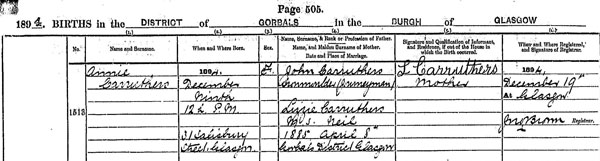 Page 505.
1894. BIRTHS in the DISTRICT of GORBALS in the BURGH of GLASGOW
(1.) (2.) (3.) (4.) (5.) (6.)
No. Name and Surname. When and Where Born. Sex. Name, Surname, & Rank or Profession of Father. Name, and Maiden Surname of Mother. Date and Place of Marriage. Signature and Qualification of Informant, and Residence, if out of the House in which the Birth occurred. When and Where Registered, and Signature of Registrar.
Annie 1894. F. John Carruthers L Carruthers 1894,
Carruthers December (Journeyman) Mother December 19th
1513 Ninth Lizzie Carruthers At Glasgow
P.M. M.S. Neil Registrar.
31 Salisbury 1885 April 8th
Street Glasgow Gorbals District Glasgow